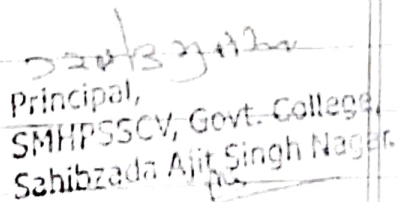 Principal,
SMHPSSCV, Govt. College,
Sahibzada Ajit Singh Nagar.